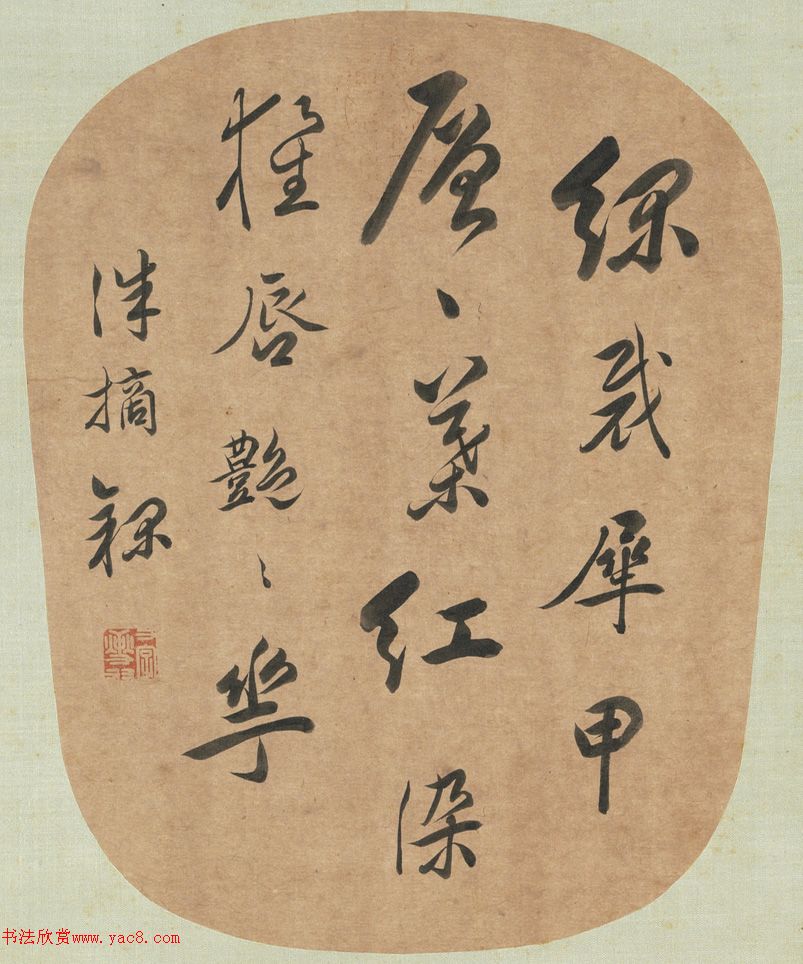 綠裁犀甲
層〻葉紅染
猩唇艷〻華
摘錄
书法欣赏www.yac8.com